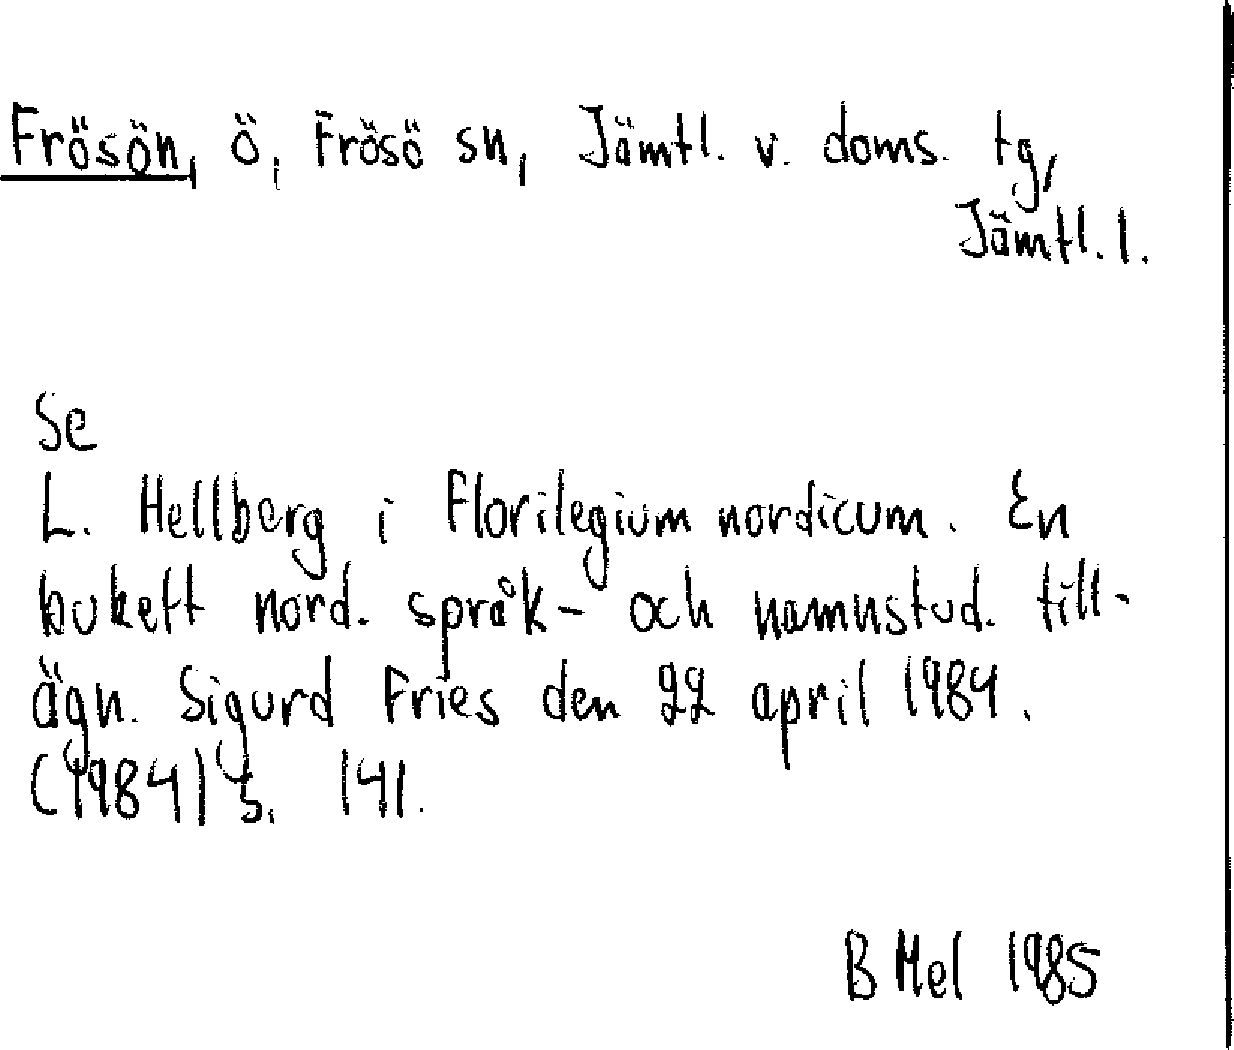 Frösön, ö, Frösö sn, Jämtl. v. doms. tg,
Jämtl. l.
Se
L. Hellberg i Florilegium nordicum. En
bukett nord. språk- och namnstud. till-
ägn. Sigurd Fries den 22 april 1984.
(1984) s. 141.
B Mel 1985